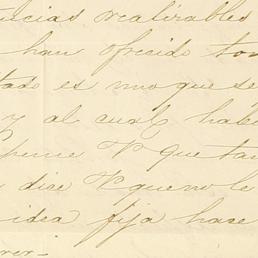 ncias realizables
han ofrecido ton
tado es uno que se
y al cual habi
Spence V. que tan
dice V. que no le
idea fija hase
rer.-